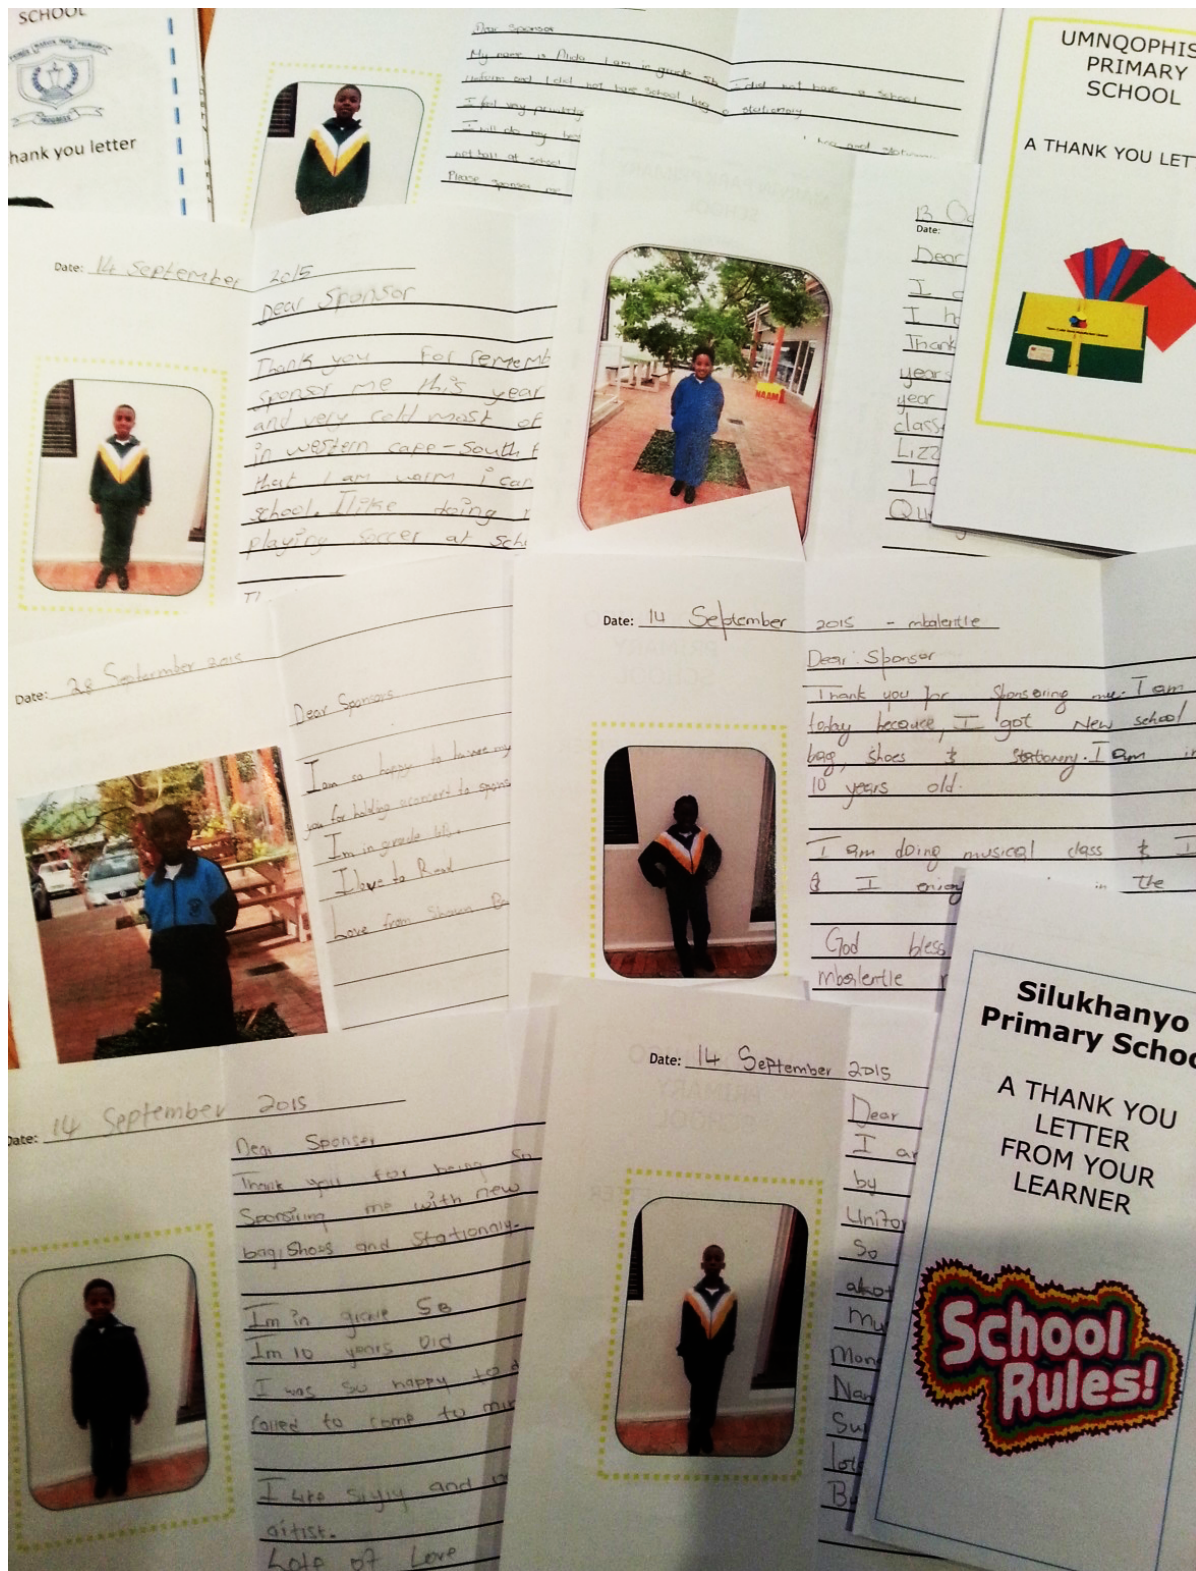 SCHOOL
hank you letter
Dear Sponsor
My name is
I am in grade 5b I did not have a school
uniform and I did not have school bag o stationary
I feel very
I will do my
net ball at school
Please sponsor me
UMNQOPHIS
PRIMARY
SCHOOL
A THANK YOU LETT
Date: 14 September 2015
Dear Sponsor
Thank you for rememb
sponsor me this year
and very cold most of
in western cape - South
that I am worm i can
school. I like doing
playing soccer at scho
13 Oc
Date:
Dear
I
I h
Thank
years
year
class
Lizz
Lo
Qu
NAAM
Date: 28 September 2015
Dear Sponsors
I am so happy to have my
you for holding aconcert to spons
Im in grade 4A.
I love to Read
Love from Shawn
Date: 14 September 2015 - mbalentle
Dear: Sponsor
Thank you for Sponsoring me. I am
today because, I got New school
bag, shoes & stationery. I am in
10 years old.
I am doing musical class & I
& I enjoy in the
God bless
mbalentle
Date: 14 September 2015
Dear Sponser
Thank you for being so
Sponsiring me with new
bag, Shoes and Stationnly.
Im in grade 5B
Im 10 years Old
I was so happy to
called to come to
I Like and
aitist.
Lots of Love
Date: 14 September 2015
Dear
I ar
by
Unifor
So
Mu
Mon
Nam
Su
lot
B
Silukhanyo
Primary Schoo
A THANK YOU
LETTER
FROM YOUR
LEARNER
School
Rules!